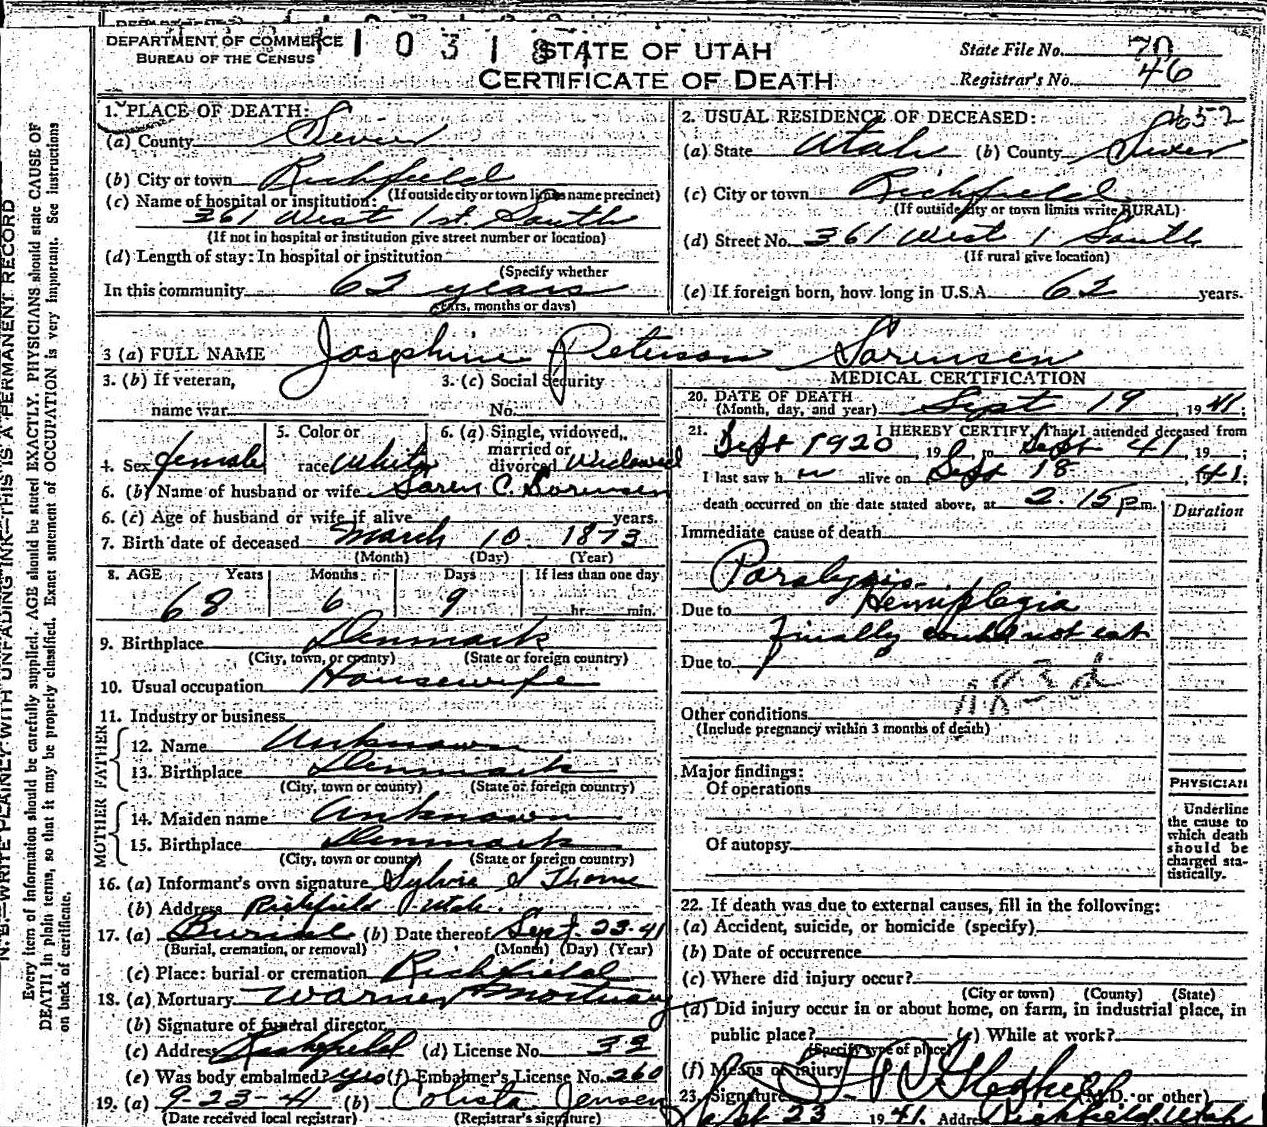 DEPARTMENT OF COMMERCE
BUREAU OF THE CENSUS
STATE OF UTAH
CERTIFICATE OF DEATH
State File No. 70
Registrar's No. 46
1. PLACE OF DEATH:
(a) County Sevier
(b) City or town Richfield
(If outside city or town limits name precinct)
(c) Name of hospital or institution:
361 West 1st. South
(If not in hospital or institution give street number or location)
(d) Length of stay: In hospital or institution
(Specify whether
In this community 62 years
years, months or days)
2. USUAL RESIDENCE OF DECEASED:
(a) State Utah (b) County Sevier
(c) City or town Richfield
(If outside city or town limits write RURAL)
(d) Street No. 361 West 1 South
(If rural give location)
(e) If foreign born, how long in U.S.A. 62 years.
3 (a) FULL NAME Josephine Peterson Sorensen
3. (b) If veteran,
name war
3. (c) Social Security
No.
4. Sex female
5. Color or
race White
6. (a) Single, widowed,
married or
divorced Widowed
6. (b) Name of husband or wife Soren C. Sorensen
6. (c) Age of husband or wife if alive years.
7. Birth date of deceased March 10 1873
(Month) (Day) (Year)
8. AGE Years Months Days If less than one day
68 6 9 hr. min.
9. Birthplace Denmark
(City, town, or county) (State or foreign country)
10. Usual occupation Housewife
11. Industry or business
FATHER
12. Name Unknown
13. Birthplace Denmark
(City, town or county) (State or foreign country)
MOTHER
14. Maiden name Unknown
15. Birthplace Denmark
(City, town or county) (State or foreign country)
16. (a) Informant's own signature Sylvia S Thorne
(b) Address Richfield Utah.
17. (a) Burial (b) Date thereof Sept. 23-41
(Burial, cremation, or removal) (Month) (Day) (Year)
(c) Place: burial or cremation Richfield
18. (a) Mortuary Warner Mortuary
(b) Signature of funeral director
(c) Address Richfield (d) License No. 32
(e) Was body embalmed? yes (f) Embalmer's License No. 260
19. (a) 9-23-41 (b) Colista Jensen
(Date received local registrar) (Registrar's signature)
MEDICAL CERTIFICATION
20. DATE OF DEATH
(Month, day, and year) Sept 19, 1941;
21. I HEREBY CERTIFY, That I attended deceased from
Sept 1920, 19 , to Sept 41, 19 ;
I last saw h alive on Sept 18, 41;
death occurred on the date stated above, at 2.15 p m.
Duration
Immediate cause of death
Paralysis
Due to Hemiplegia
finally could not eat
Due to
Other conditions
(Include pregnancy within 3 months of death)
Major findings:
Of operations
Of autopsy
PHYSICIAN
Underline
the cause to
which death
should be
charged sta-
tistically.
22. If death was due to external causes, fill in the following:
(a) Accident, suicide, or homicide (specify)
(b) Date of occurrence
(c) Where did injury occur?
(City or town) (County) (State)
(d) Did injury occur in or about home, on farm, in industrial place, in
public place? (e) While at work?
(Specify type of place)
(f) Means of injury
23. Signature (M.D. or other)
Sept 23 1941. Address Richfield, Utah
N. B.—WRITE PLAINLY WITH UNFADING INK—THIS IS A PERMANENT RECORD
Every item of information should be carefully supplied. AGE should be stated EXACTLY. PHYSICIANS should state CAUSE OF
DEATH in plain terms, so that it may be properly classified. Exact statement of OCCUPATION is very important. See instructions
on back of certificate.